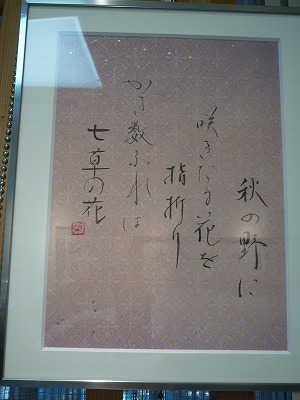 秋の野に
咲きたる花を
指折り
かき数ふれば
七草の花